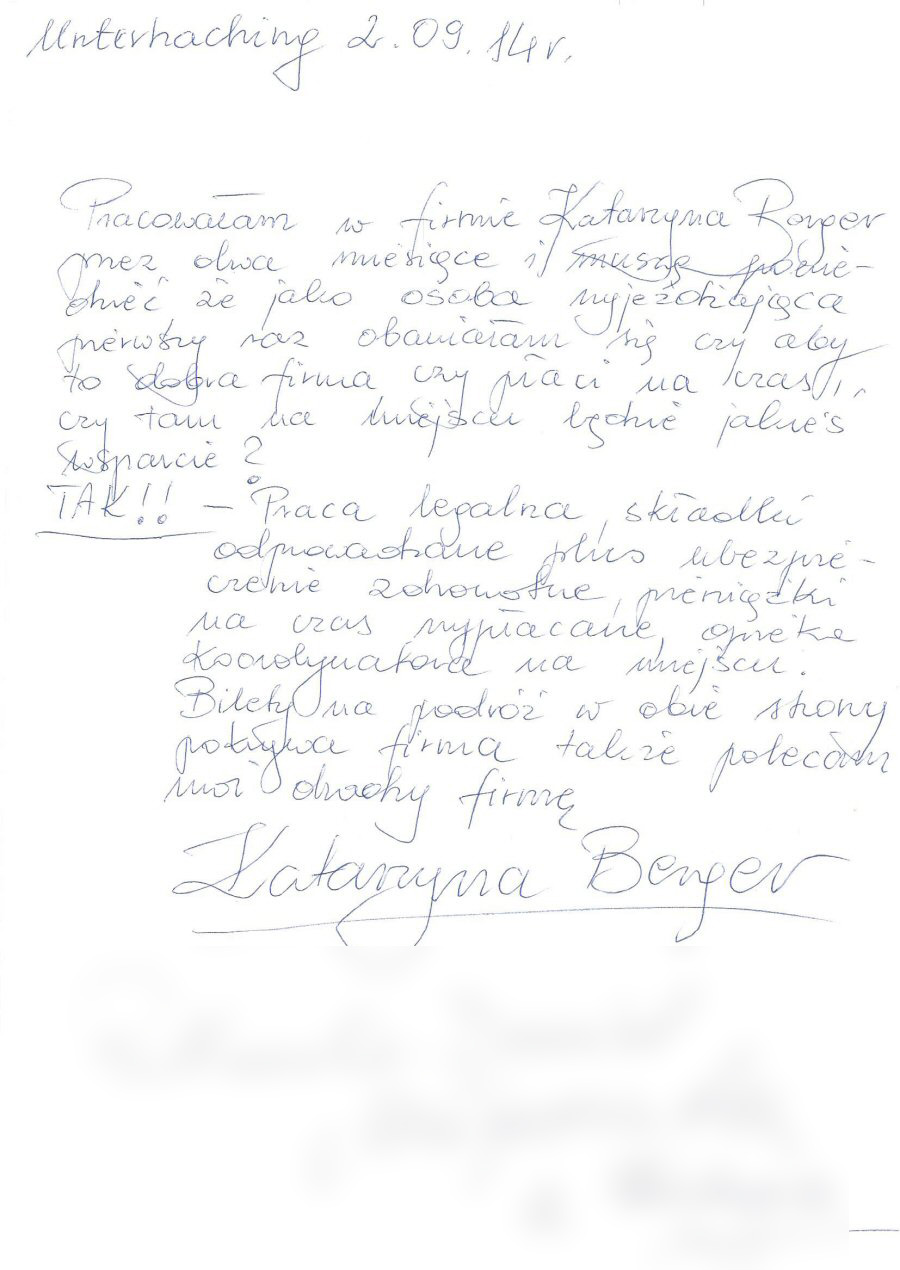 Unterhaching 2.09.14r.
Pracowałam w firmie Katarzyna Berger
przez dwa miesiące i muszę powie-
dzieć że jako osoba wyjeżdżająca
pierwszy raz obawiałam się czy aby
to dobra firma czy płaci na czas,
czy tam na miejscu będzie jakieś
wsparcie?
TAK!! - Praca legalna, składki
odprowadzane plus ubezpie-
czenie zdrowotne, pieniążki
na czas wypłacane, opieka
koordynatora na miejscu.
Bilety na podróż w obie strony
pokrywa firma także polecam
moi drodzy firmę
Katarzyna Berger